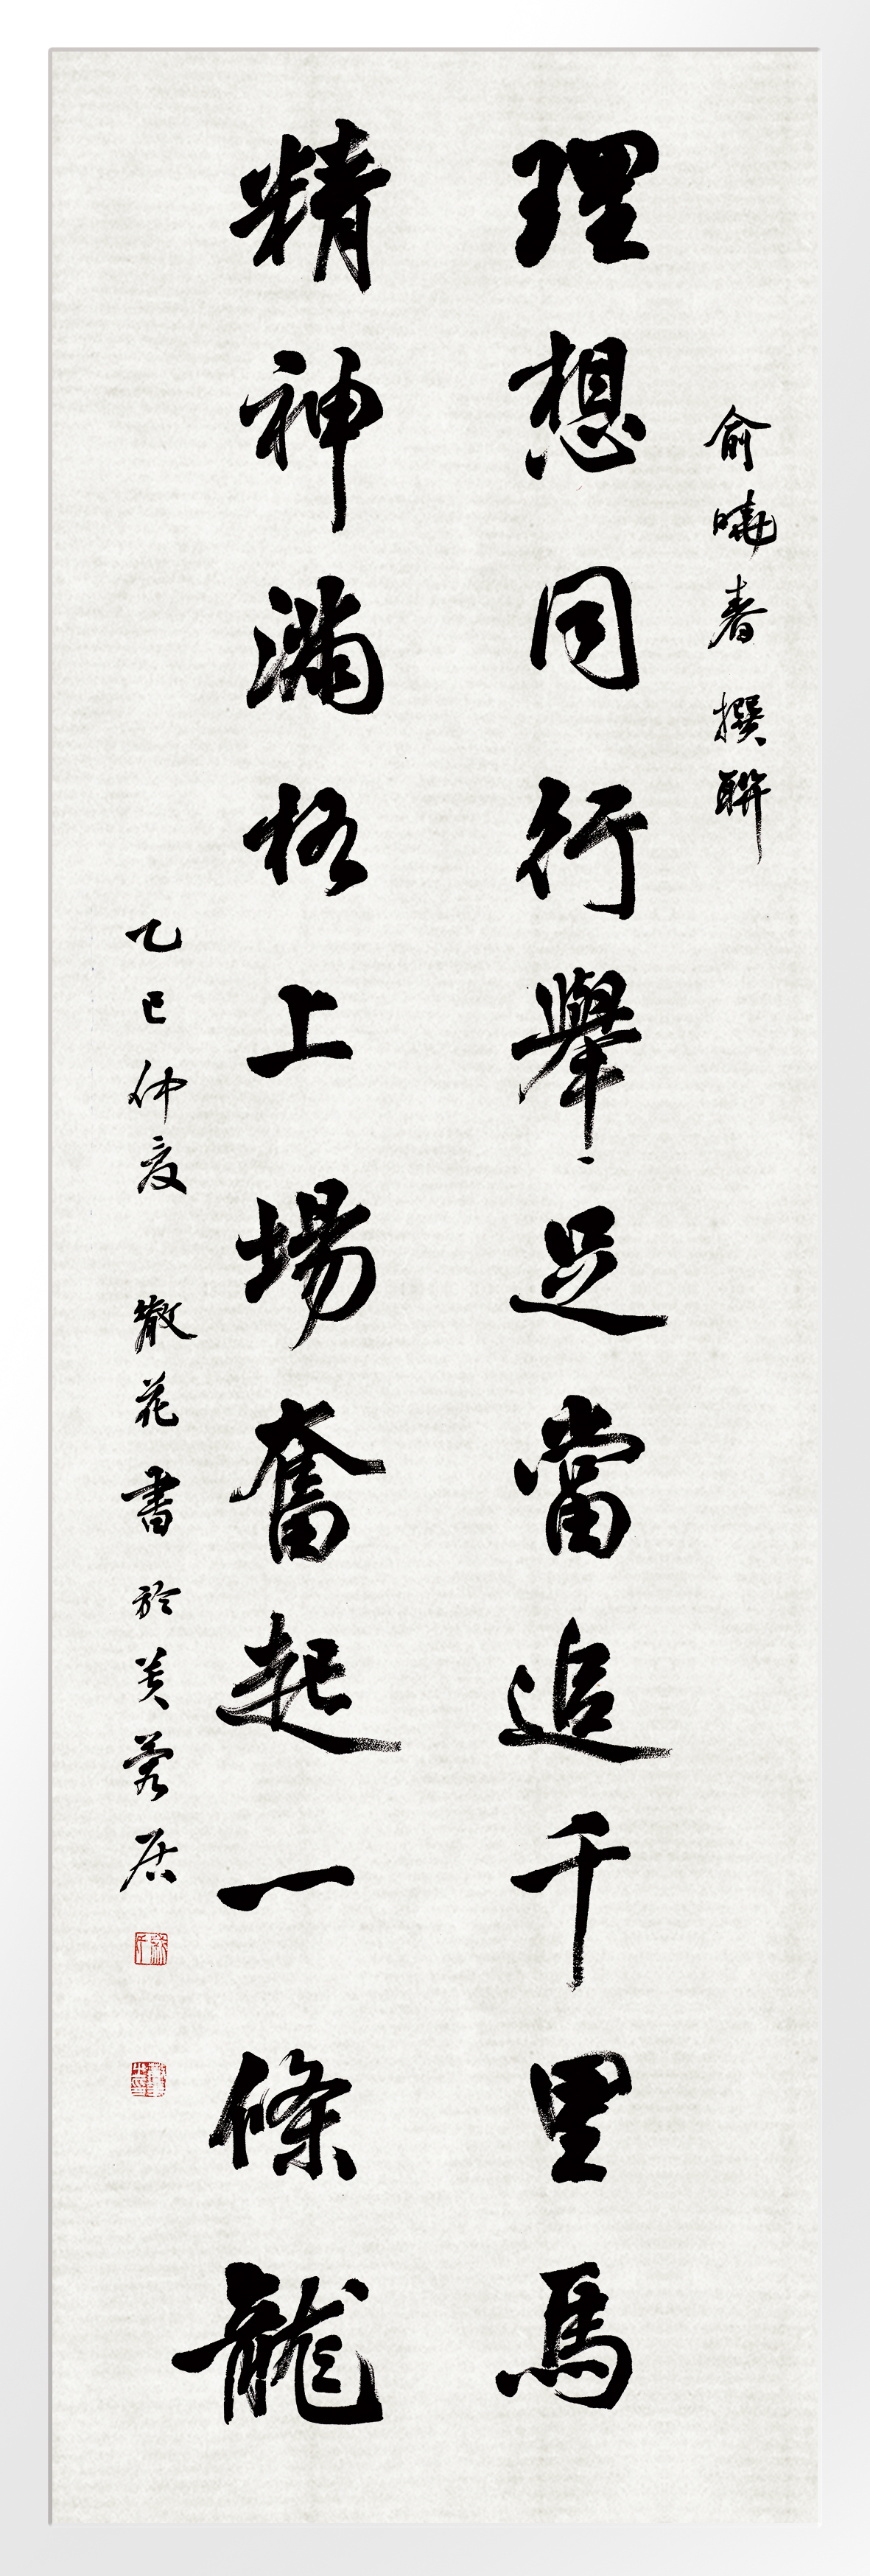 俞曉春撰聯
理想同行舉足當追千里馬
精神滿格上場奮起一條龍
乙巳仲夏 散花書於芙蓉居